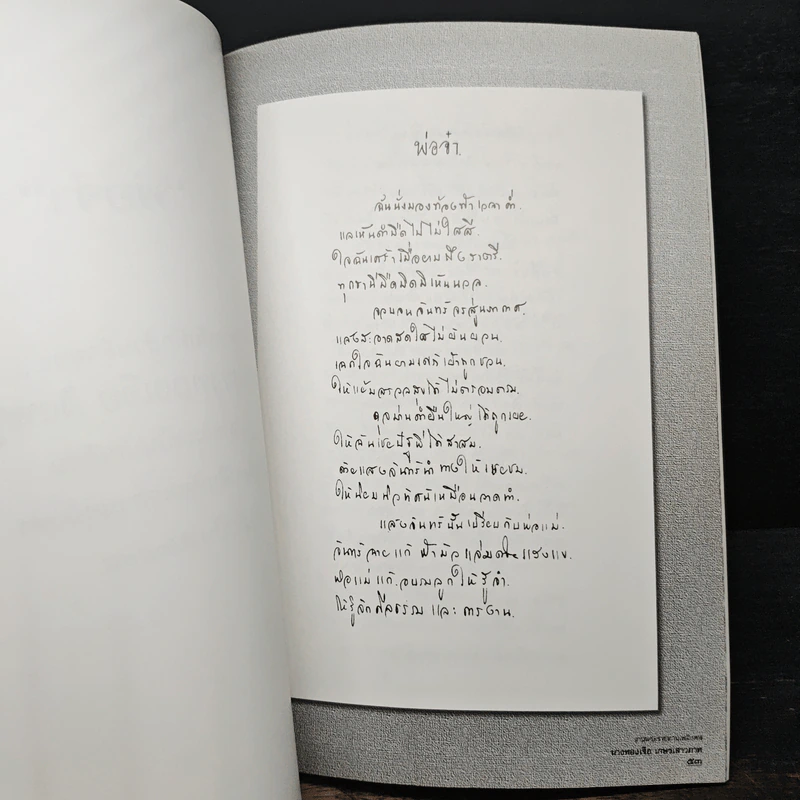 พ่อจ๋า.
ฉันนั่งมองท้องฟ้าเวลาค่ำ.
แลเห็นดำมืดไปไม่ใสสี.
ใจฉันเศร้าเมื่อยามถึงราตรี.
ทุกราตรีมืดมิดมิเห็นนวล.
จวบจนจันทร์จรสู่นภากาศ.
แสงสะอาดสดใสไม่ผันผวน.
ใจฉันยามเศร้าทุกชวน.
ให้แย้มสรวลสุขได้ไม่ตรอมตรม.
ดุจม่านดำผืนใหญ่ได้ถูกเผย.
ให้ฉันเชย
ด้วยแสงจันทร์นำทางให้เชยชม.
ให้นิยมทิวทัศน์เหมือนวาดทำ.
แสงจันทร์นั้นเปรียบกับพ่อแม่.
จันทร์ฉายแก่ฟ้ามัวแสง
พ่อแม่แก้.อบรมลูกให้รู้จำ.
ให้รู้จักศีลธรรมและการงาน.
งานพระราชทานเพลิงศพ
นางทองเจือ เกษรเสาวภาค
๕๓